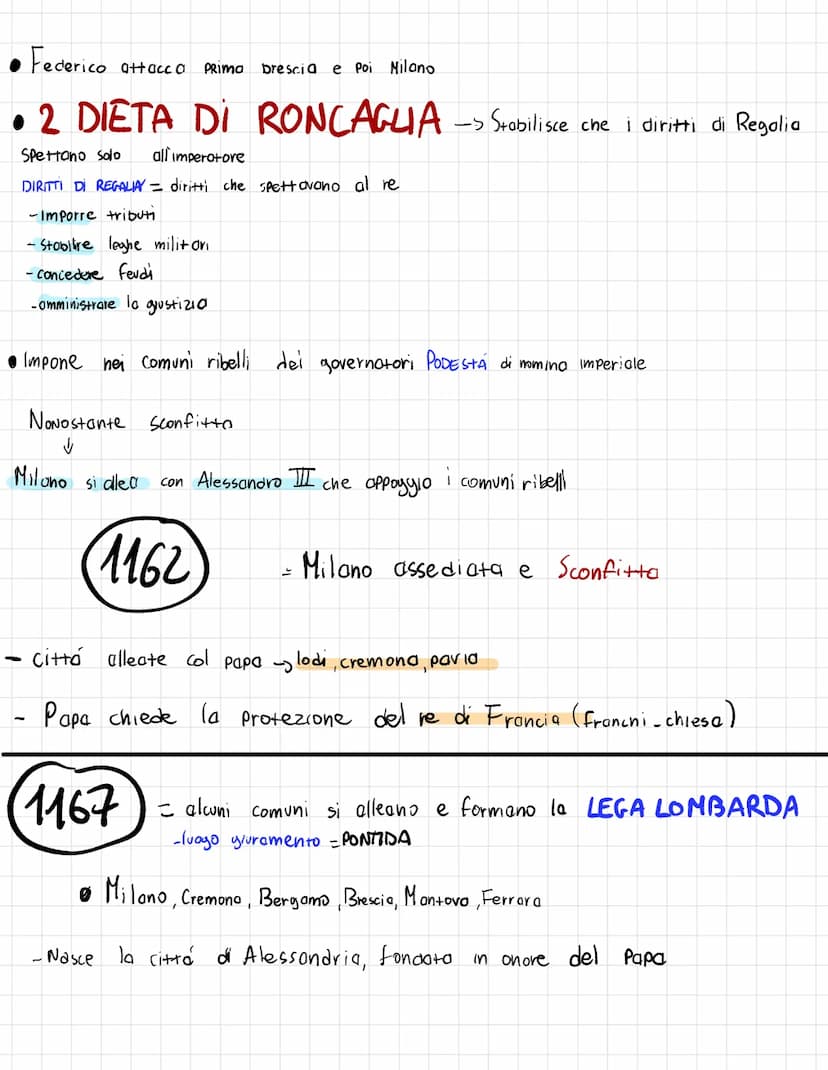 • Federico attacca prima brescia e poi Milano
• 2 DIETA Di RONCAGLIA -> Stabilisce che i diritti di Regalia
spettano solo all'imperatore
DIRITTI Di REGALIA = diritti che spettavano al re
- Imporre tributi
- stabilire leghe militari
- concedere feudi
- amministrare la giustizia
• Impone nei comuni ribelli dei governatori PODESTÁ di nomina imperiale
Nonostante sconfitta
↓
Milano si allea con Alessandro III che appoggia i comuni ribelli
1162 = Milano assediata e Sconfitta
- cittá alleate col papa -> lodi, cremona, pavia
- Papa chiede la protezione del re di Francia (franchi-chiesa)
1167 = alcuni comuni si alleano e formano la LEGA LOMBARDA
- luogo giuramento = PONTIDA
• Milano, Cremona, Bergamo, Brescia, Mantova, Ferrara
- Nasce la cittá di Alessandria, fondata in onore del Papa